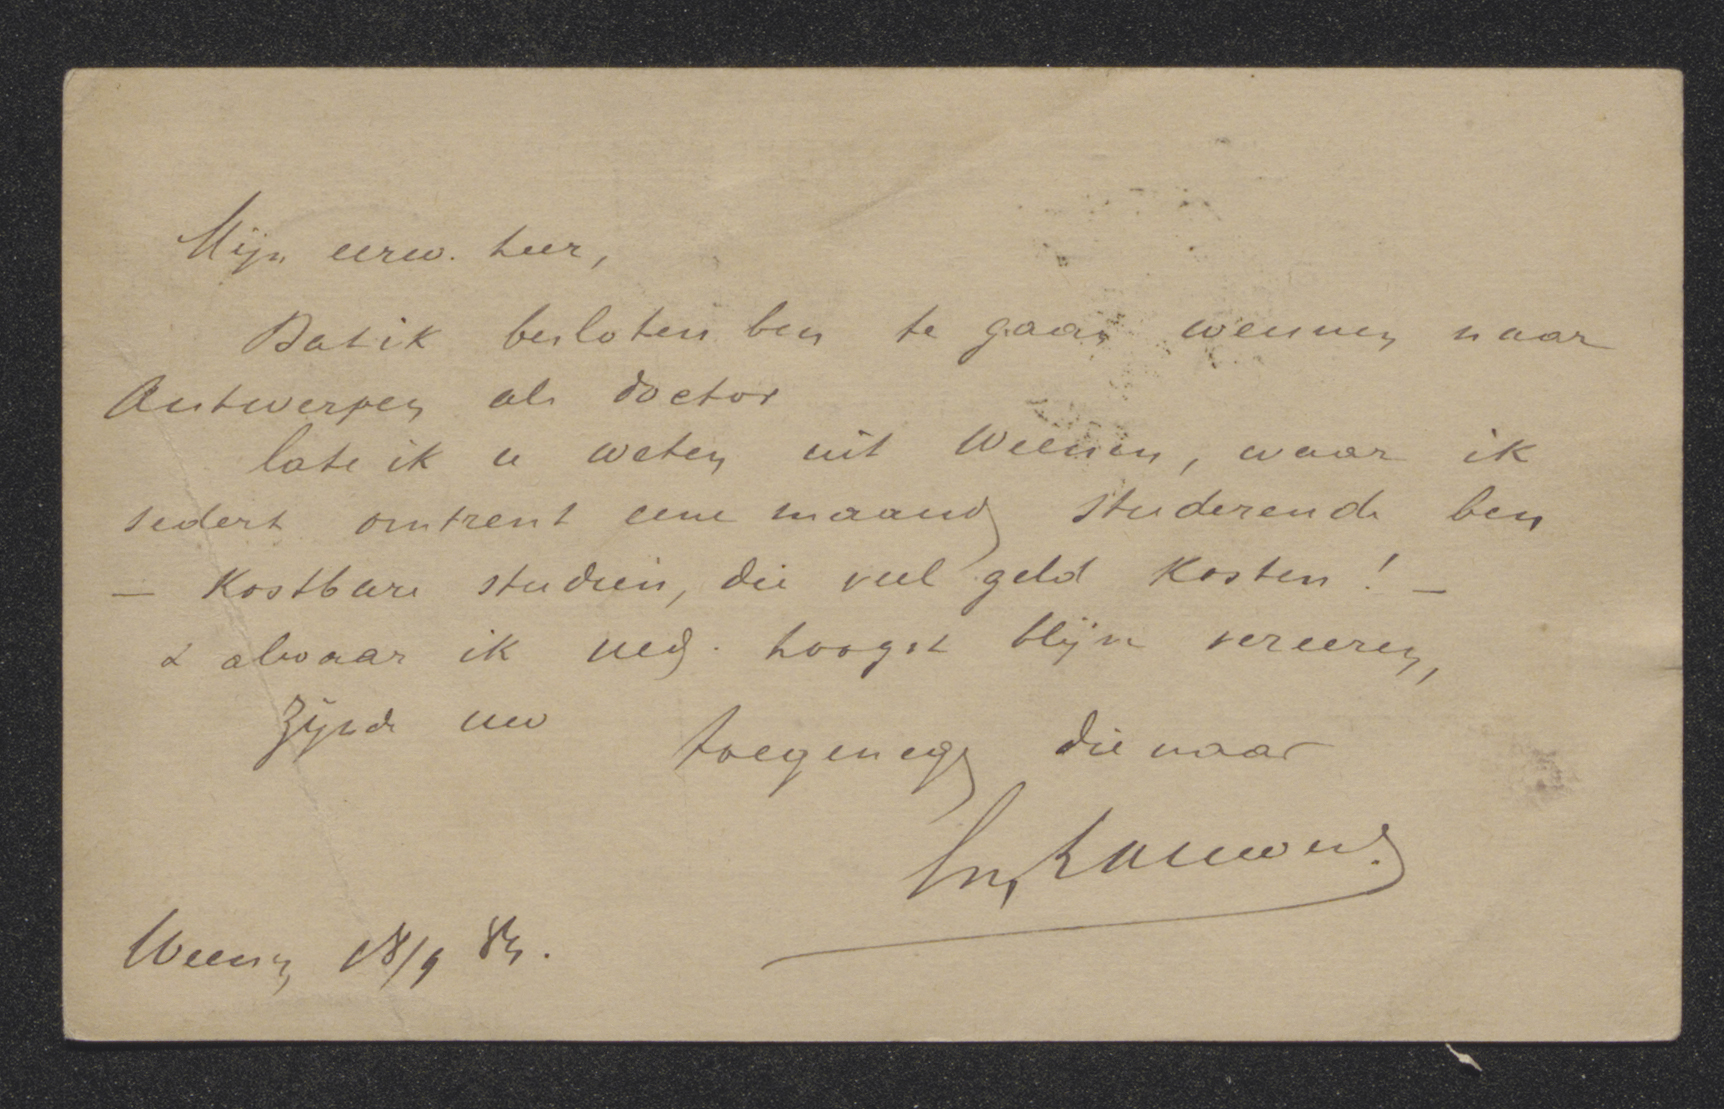 Mijn eerw. heer,
Dat ik besloten ben te gaan wennen naar
Antwerpen als doctor
late ik u weten uit Weenen, waar ik
sedert omtrent eene maand studerende ben
— Kostbare studien, die veel geld Kosten! —
& alwaar ik ued. hoogst blijve vereeren,
Zijnde uw
toegenegd dienaar
Em. Lauwers.
Weenen 18/9 84.